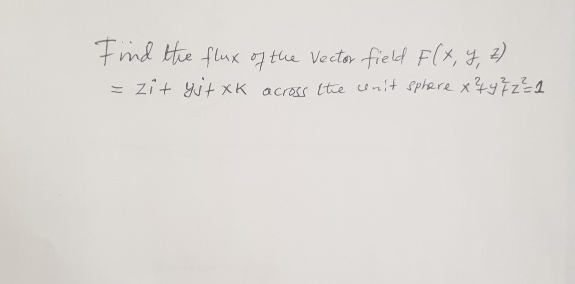 Find the flux of the Vector field F(x, y, z)
= zi + yj + xK across the unit sphere x²+y²+z²=1